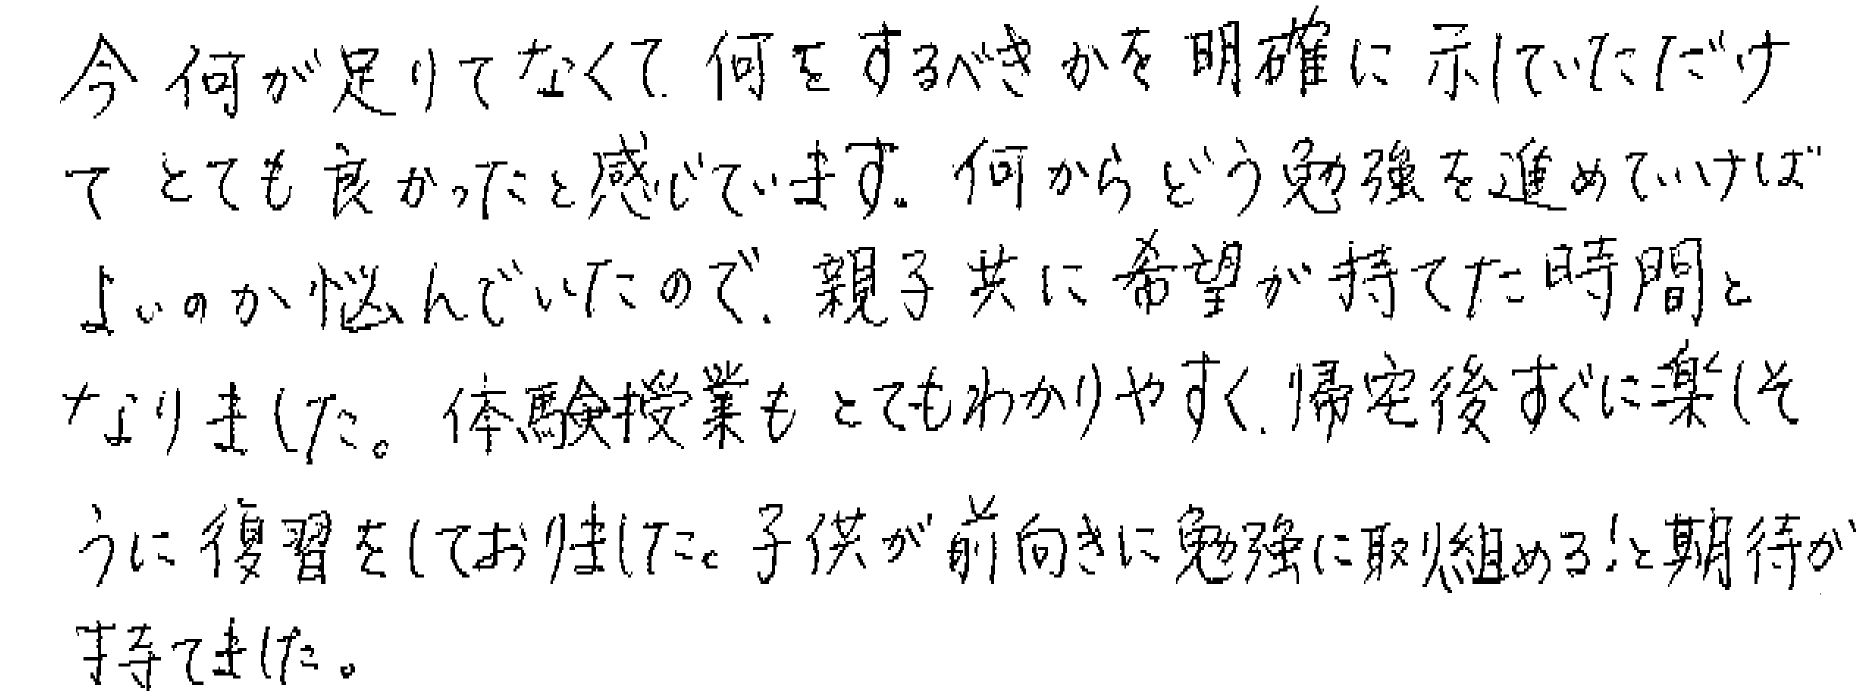 今何が足りてなくて、何をするべきかを明確に示していただけ
てとても良かったと感じています。何からどう勉強を進めていけば
よいのか悩んでいたので、親子共に希望が持てた時間と
なりました。体験授業もとてもわかりやすく、帰宅後すぐに楽しそ
うに復習をしておりました。子供が前向きに勉強に取り組める!と期待が
持てました。